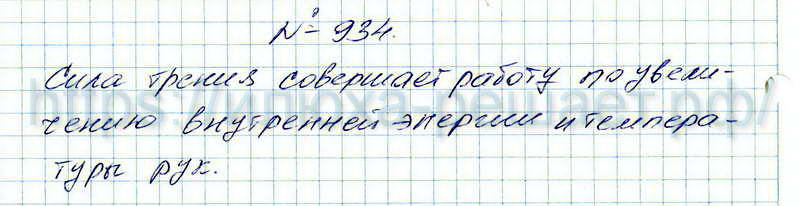 № 934.
Сила трения совершает работу по увели-
чению внутренней энергии и темпера-
туры рук.
https://илюха-решает.рф/